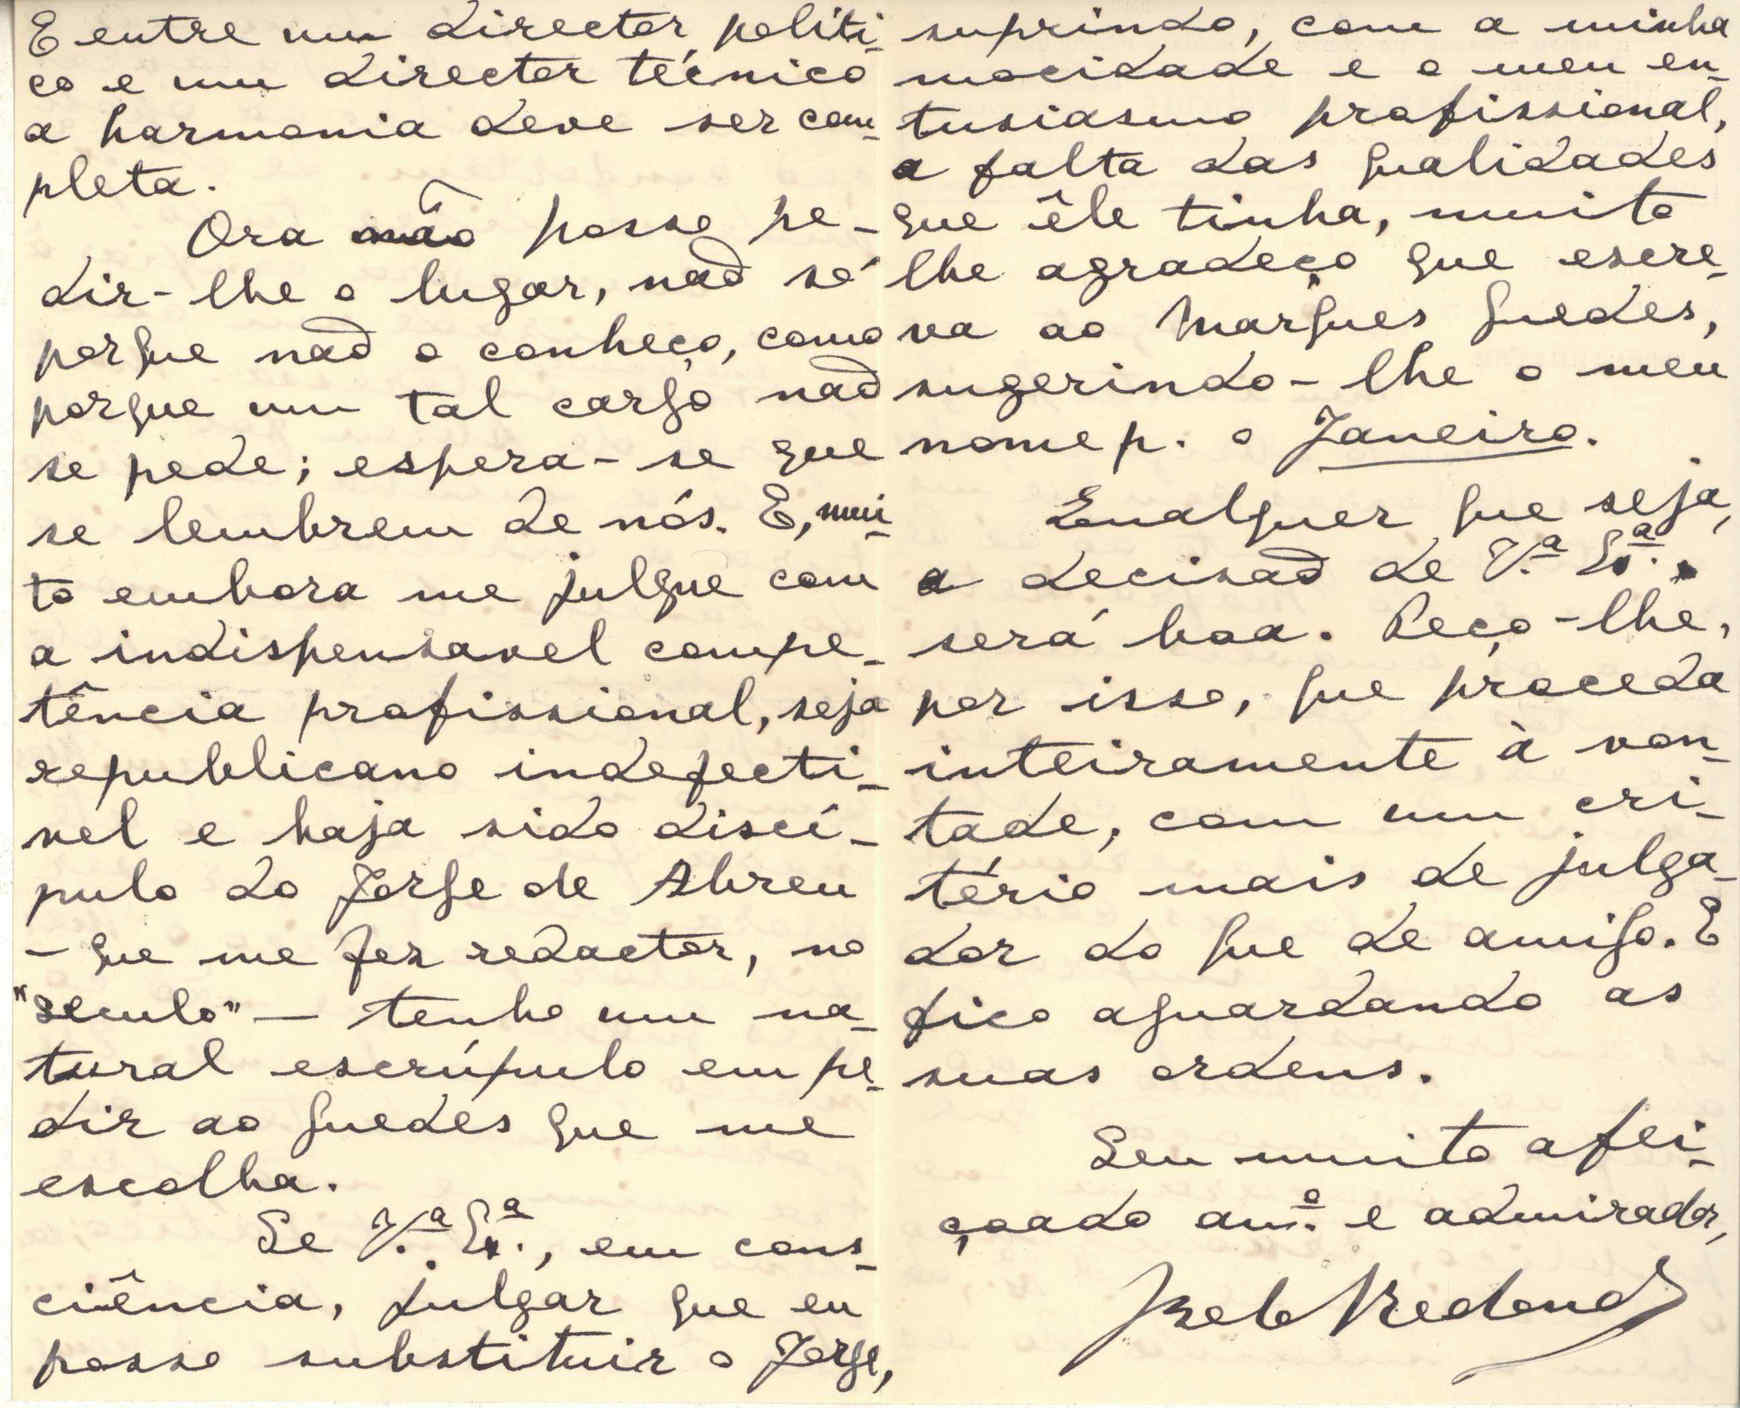 E entre um director politi-
co e um director técnico
a harmonia deve ser com-
pleta.
Ora não posso pe-
dir-lhe o lugar, não só
porque não o conheço, como
porque um tal cargo não
se pede; espera-se que
se lembrem de nós. E, mui-
to embora me julgue com
a indispensavel compe-
tência profissional, seja
republicano indefecti-
vel e haja sido discí-
pulo do Jorge de Abreu
- que me fez redactor, no
"seculo" - tenho um na-
tural escrúpulo em pe-
dir ao Guedes que me
escolha.
Se V.ª Ex.ª, em cons-
ciência, julgar que eu
posso substituir o Jorge,
suprindo, com a minha
mocidade e o meu en-
tusiasmo profissional,
a falta das qualidades
que êle tinha, muito
lhe agradeço que escre-
va ao Marques Guedes,
sugerindo-lhe o meu
nome p. o Janeiro.
Qualquer que seja,
a decisão de V.ª Ex.ª,
será boa. Peço-lhe,
por isso, que proceda
inteiramente à von-
tade, com um cri-
tério mais de julga-
dor do que de amigo. E
fico aguardando as
suas ordens.
Seu muito afei-
çoado am.º e admirador,
Belo Redondo